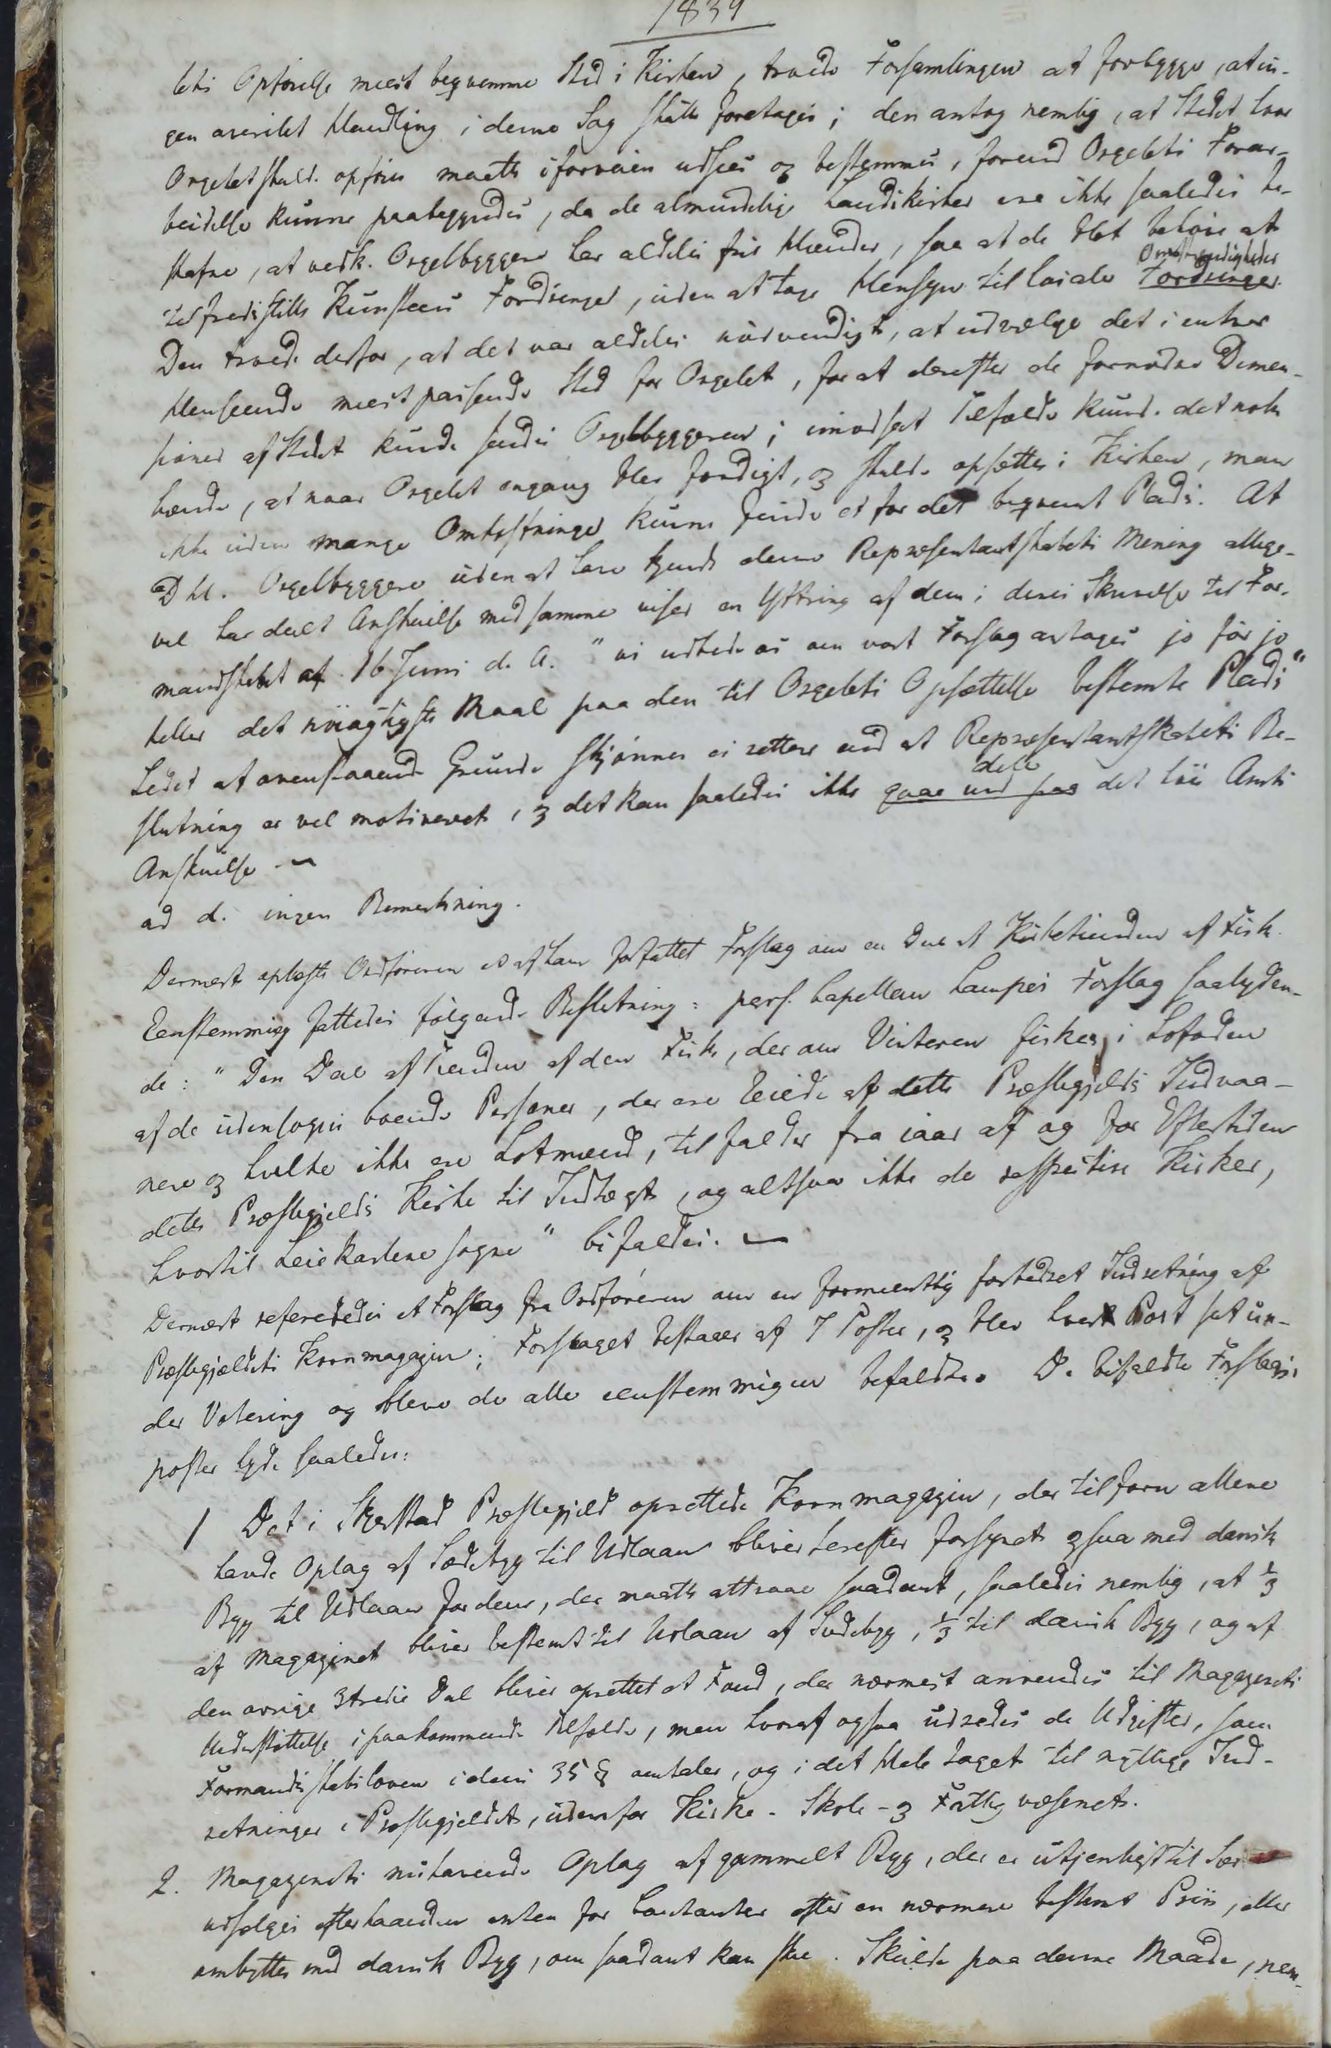 1839
lets Opførelse meest beqvemme Sted i Kirken, troede Forsamlingen at forbygge, at in-
gen overilet Handling i denne Sag skulle foretages; den antog nemlig, at Stedet hvor
Orgelet skuld. opføres maatte iforveien udsees og bestemmes, forend Orgelets Forar-
beidelse kunne paabegyndes, da de almindelige Landskirker ere ikke saaledes be-
skafne, at vedk. Orgelbyggere har aldeles frie Hænder, saa at de blot behøve at
Omstændigheder
tilfredsstille Kunstens Fordringer, uden at tage Hensyn til locale Fordringer.
Den troede derfor, at det var aldeles nødvendigt, at udvælge det i enhver
Henseende meest passende Sted for Orgelet, for at derefter de fornødne Dimen-
sioner af Stedet kunde sendes Orgelbyggeren; i modsat Tilfælde kunde det nok
hænde, at naar Orgelet engang blev færdigt, og skulde opsættes i Kirken, man
ikke uden mange Omkostninger kunne finde et for det beqvemt Plads. At
D Hr. Orgelbyggere uden at have kjendt denne Repræsentantskabets Mening allige-
vel har deelt Anskuelse med samme viser en Yttring af dem i deres Skrivelse til For-
mandskabet af 16 Juni d. A. "vi udbede os om vort Forslag antages jo før jo
heller det nøiagtigste Maal paa den til Orgelets Opsættelse bestemte Plads"
Ledet af ovenstaaende Grunde skjønnes ei rettere end at Repræsentantskabets Be-
dele
slutning er vel motiveret, og det kan saaledes ikke gaae ind paa det høie Amts
Anskuelse —
ad d. ingen Bemerkning.
Dernæst oplæste Ordføreren et af ham forfattet Forslag om en Deel af Kirketienden af Fisk.
Eenstemmig fattedes følgende Beslutning: pers. Capellan Lampes Forslag saalyden-
de: "Den Deel af Tienden af den Fisk, der om Vinteren fiskes i Lofoden
af de udensogns boende Personer, der ere leiede af dette Præstegjelds Indvaa-
nere og hvilke ikke ere Lotmænd, tilfalder fra iaar af og for Eftertiden
dette Præstegjelds Kirke til Indtægt, og altsaa ikke de respective Kirker,
hvortil Leiekarlene sogne" bifaldes. —
Dernæst refereredes et Forslag fra Ordføreren om en formeentlig forbedret Indretning af
Præstegjældets Kornmagazin; Forslaget bestaaer af 7 Poster, og blev hver Post sat un-
der Votering og bleve de alle eenstemmigen bifaldte. De bifaldte Forslags
poster lyde saaledes:
1 Det i Skjerstad Præstegjeld oprettede Kornmagazin, der tilforn allene
havde Oplag af Sædebyg til Udlaan bliver herefter forsynet ogsaa med dansk
Byg til Udlaan for dem, der maatte attraae saadant, saaledes nemlig, at 1/3
af Magazinet bliver bestemt til Udlaan af Sædebyg, 1/3 til dansk Byg, og af
den øvrige 3tredie Deel bliver oprettet et Fond, der nærmest anvendes til Magazinets
Understøttelse i paakommende Tilfælde, men hvoraf ogsaa udredes de Udgifter, som
Formandskabsloven i dens 35 § omtaler, og i det Hele taget til nyttige Ind-
retninger i Præstegjeldet, udenfor Kirke- Skole- og Fattigvæsenet.
2. Magazinets nuhavende Oplag af gammelt Byg, der er utjenligt til Sæd
udsælges efterhaanden enten for Contanter efter en nærmere bestemt Priis, eller
ombyttes med dansk Byg, om saadant kan skee. Skulde paa denne Maade, nem-